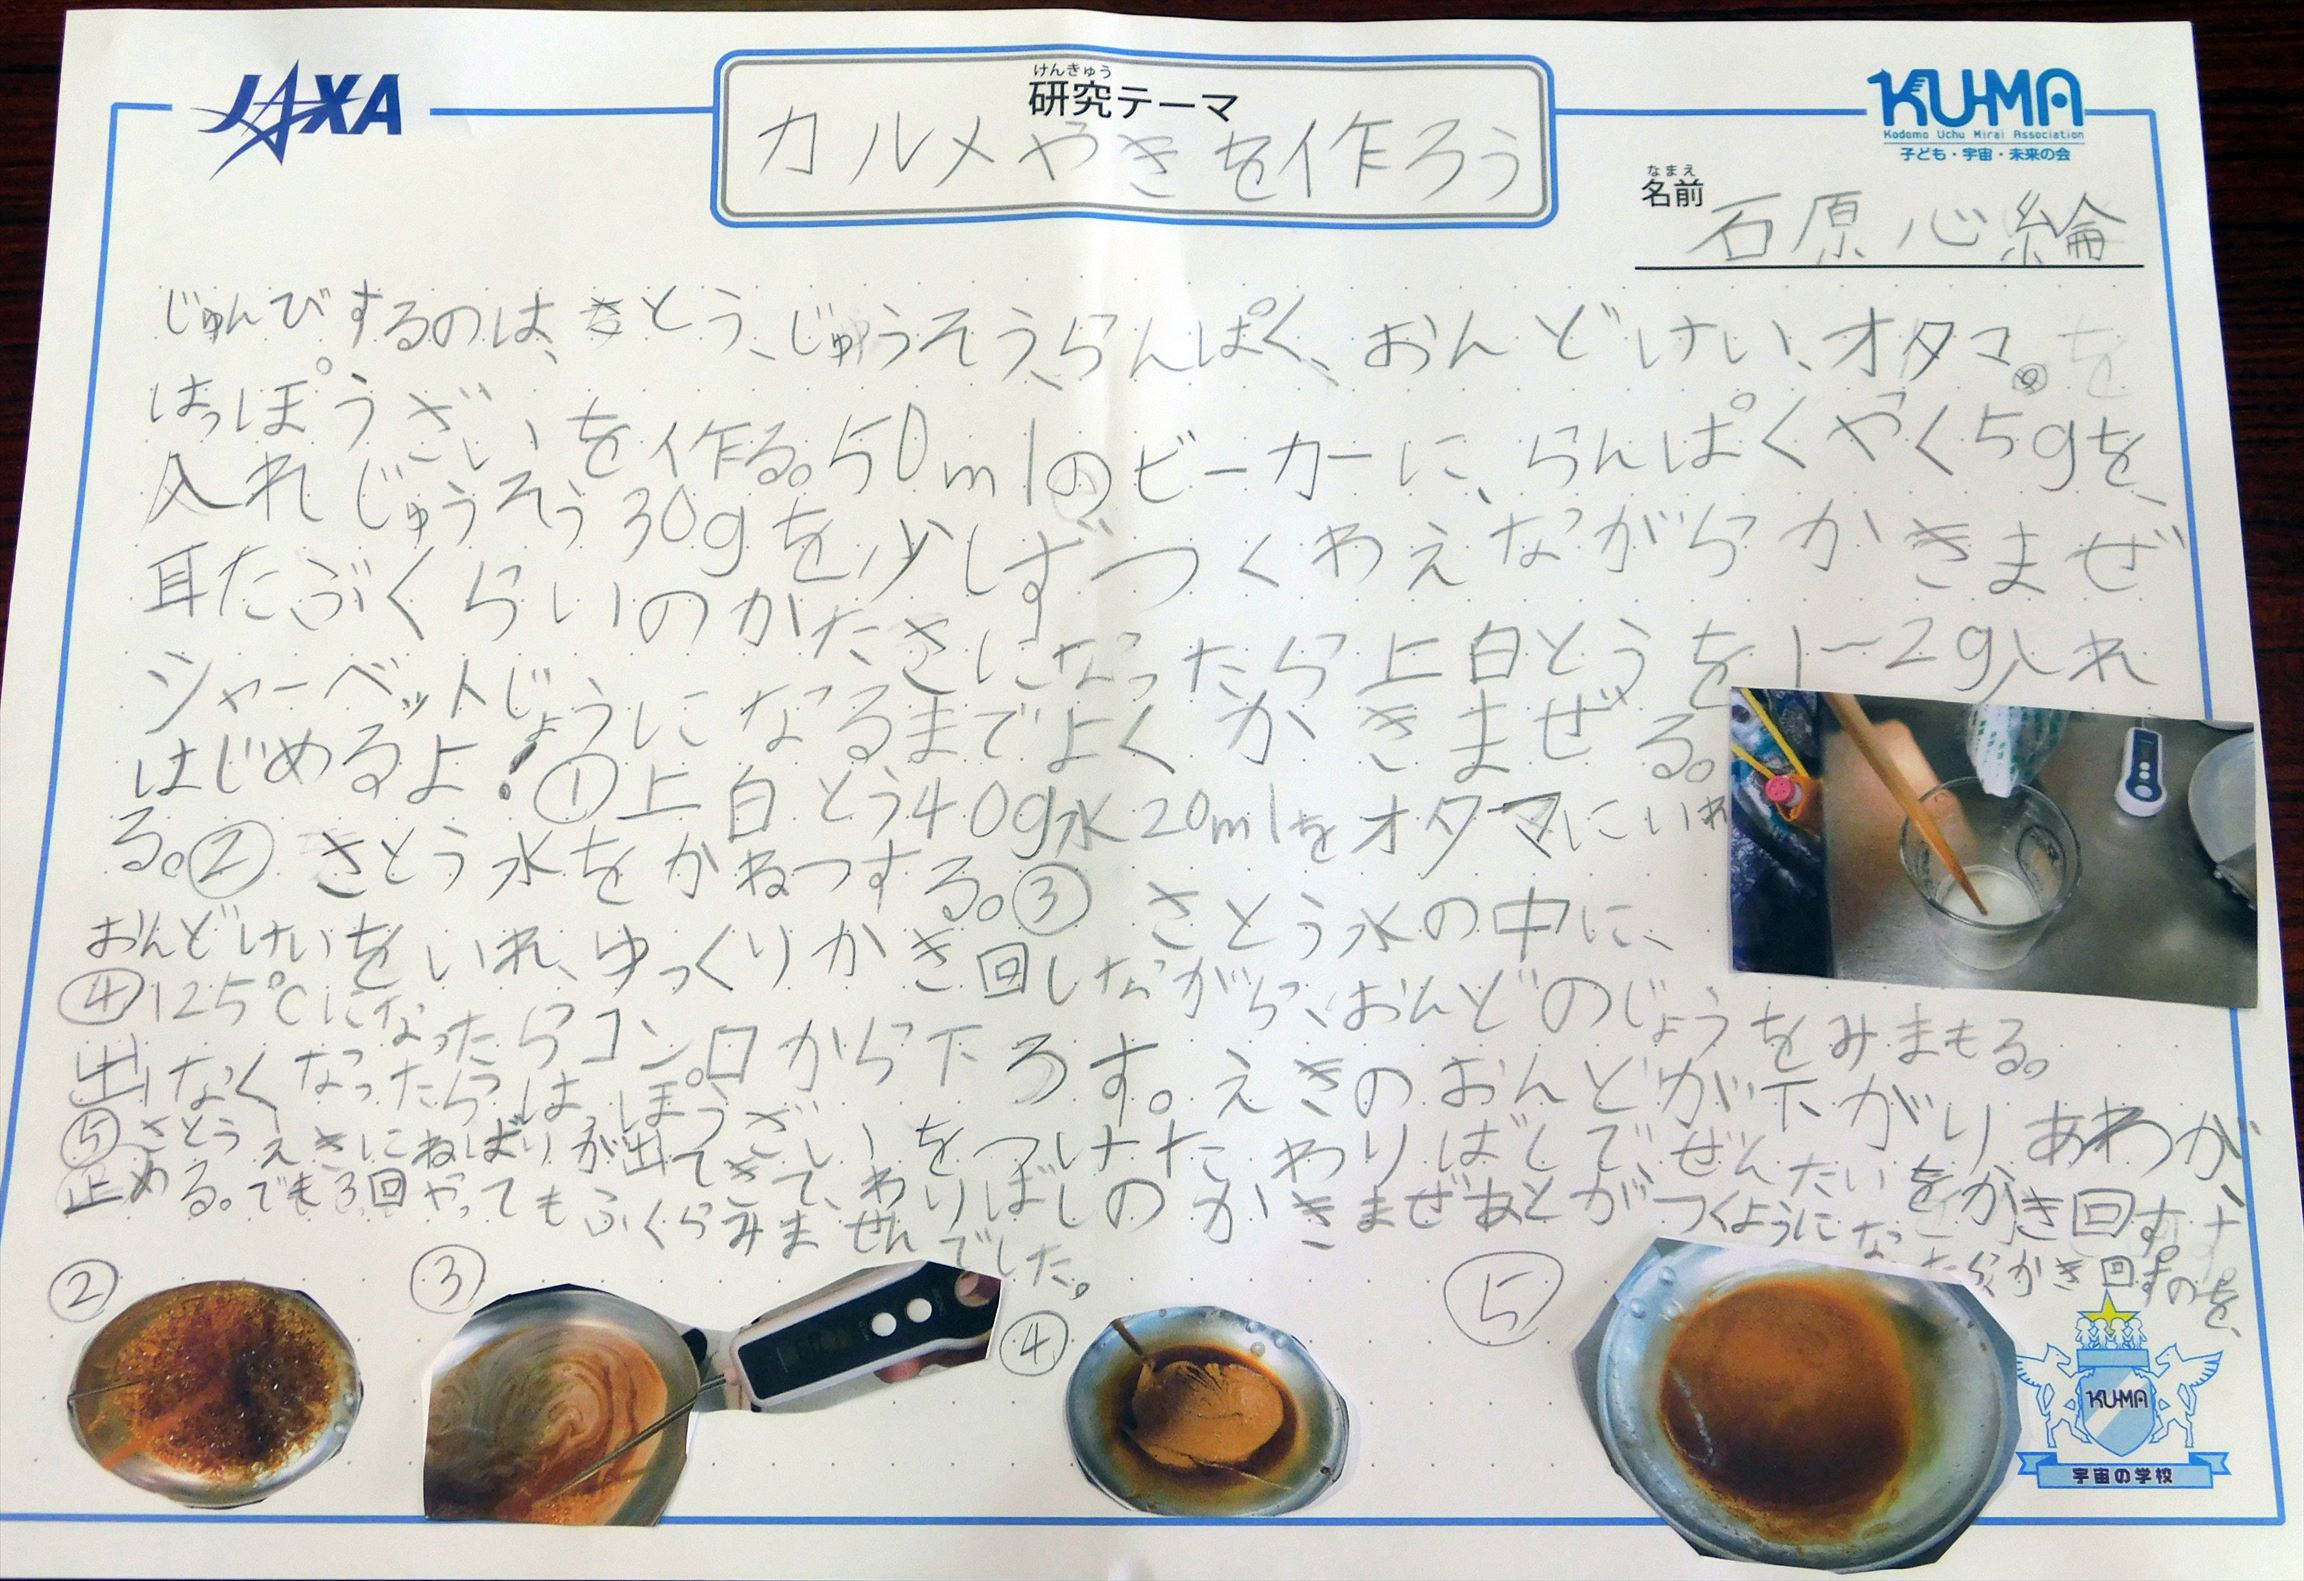 JAXA
けんきゅう
研究テーマ
カルメやきを作ろう
KUMA
Kodomo Uchu Mirai Association
子ども・宇宙・未来の会
なまえ
名前
石原心綸
じゅんびするのは、さとう、じゅうそう、らんぱく、おんどけい、オタマ。
はっぽうざいを作る。50mlのビーカーに、らんぱくやく5gを、
入れじゅうそう30gを少しずつくわえながらかきまぜ
耳たぶくらいのかたさになったら上白とうを1~2g入れ
シャーベットじょうになるまでよくかきまぜる。
はじめるよ!①上白とう40g水20mlをオタマにいれ
る。②さとう水をかねつする。③さとう水の中に、
おんどけいをいれ、ゆっくりかき回しながら、おんどのじょうをみまもる。
④125℃になったらコンロから下ろす。えきのおんどが下がりあわが、
出なくなったらはっぽうざいをつけたわりばしでぜんたいをかき回す。
⑤さとうえきにねばりが出てきて、わりばしのかきまぜあとがつくようになったらかき回すのを、
止める。でも3回やってもふくらみませんでした。
②
③
④
⑤
KUMA
宇宙の学校